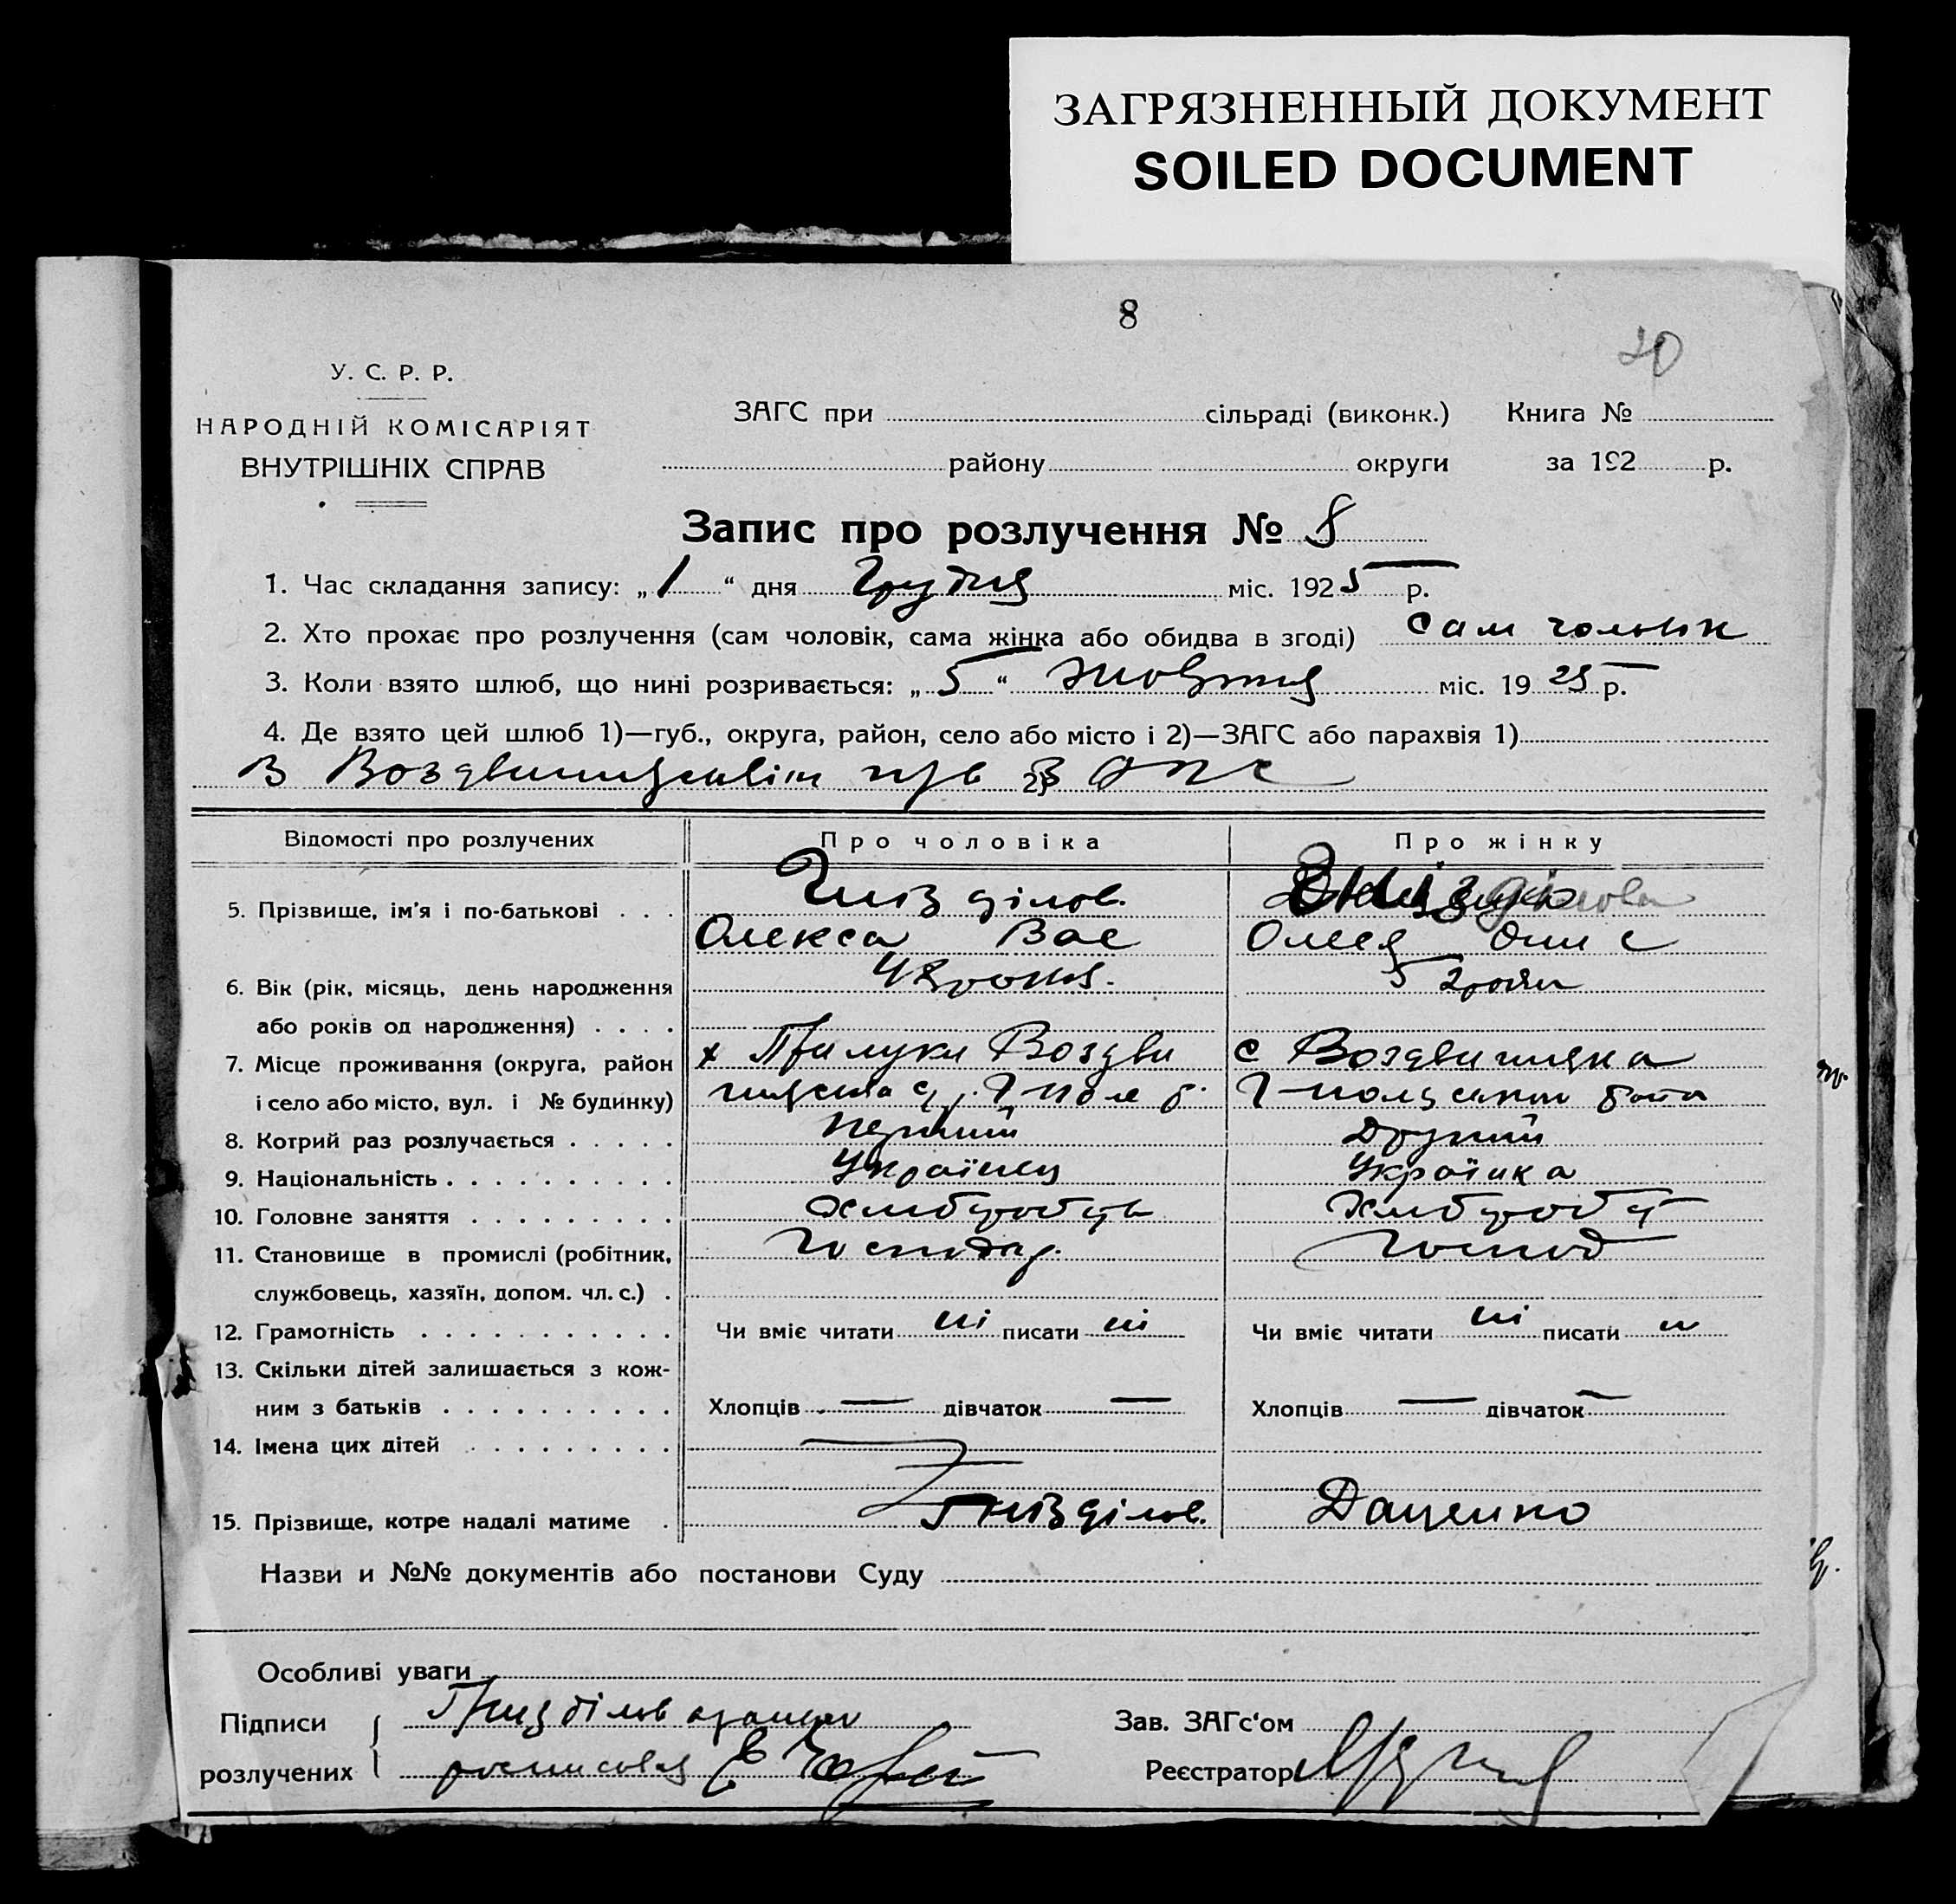 ЗАГРЯЗНЕННЫЙ ДОКУМЕНТ
SOILED DOCUMENT
8
У. С. Р. Р.
НАРОДНІЙ КОМІСАРІЯТ
ВНУТРІШНІХ СПРАВ
ЗАГС при сільраді (виконк.) Книга №
району округи за 192 р.
Запис про розлучення № 8
1. Час складання запису: „ 1 “ дня Грудня міс. 1925 р.
2. Хто прохає про розлучення (сам чоловік, сама жінка або обидва в згоді) сам чоловік
3. Коли взято шлюб, що нині розривається: „ 5 “ Жовтня міс. 19 25 р.
4. Де взято цей шлюб 1)—губ., округа, район, село або місто і 2)—ЗАГС або парахвія 1)
В 2) В
Відомості про розлучених Про чоловіка Про жінку
5. Прізвище, ім'я і по-батькові Гнізділов
Олекса Вас Олена
6. Вік (рік, місяць, день народження
або років од народження)
7. Місце проживання (округа, район х Прилуки Воздви с Воздвижка
і село або місто, вул. і № будинку)
8. Котрий раз розлучається перший Другий
9. Національність Українец Українка
10. Головне заняття Хлібороб
11. Становище в промислі (робітник, Господар Господ
службовець, хазяїн, допом. чл. с.)
12. Грамотність Чи вміє читати ні писати ні Чи вміє читати ні писати н
13. Скільки дітей залишається з кож-
ним з батьків Хлопців — дівчаток — Хлопців — дівчаток —
14. Імена цих дітей
15. Прізвище, котре надалі матиме Гнізділов. Даценко
Назви и №№ документів або постанови Суду
Особливі уваги
Підписи Зав. ЗАГс‘ом
розлучених Реєстратор